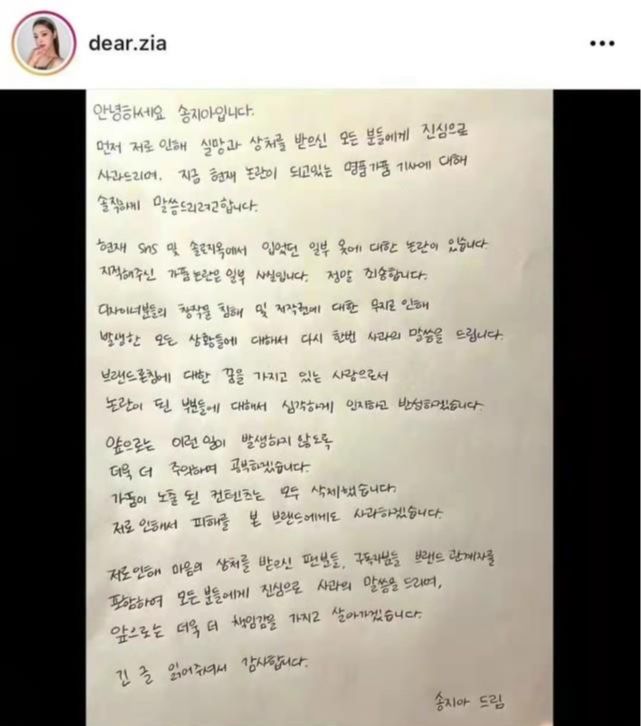 dear.zia
안녕하세요 송지아입니다.
먼저 저로 인해 실망과 상처를 받으신 모든 분들에게 진심으로
사과드리며, 지금 현재 논란이 되고있는 명품가품 기사에 대해
솔직하게 말씀드리려고합니다.
현재 SNS 및 솔로지옥에서 입었던 일부 옷에 대한 논란이 있습니다
지적해주신 가품논란은 일부 사실입니다. 정말 죄송합니다.
디자이너분들의 창작물 침해 및 저작권에 대한 무지로 인해
발생한 모든 상황들에 대해서 다시 한번 사과의 말씀을 드립니다.
브랜드론칭에 대한 꿈을 가지고 있는 사람으로서
논란이 된 부분들에 대해서 심각하게 인지하고 반성하겠습니다.
앞으로는 이런 일이 발생하지 않도록
더욱 더 주의하며 공부하겠습니다.
가품이 노출 된 컨텐츠는 모두 삭제했습니다.
저로 인해서 피해를 본 브랜드에게도 사과하겠습니다.
저로인해 마음의 상처를 받으신 팬분들, 구독자분들 브랜드 관계자를
포함하여 모든 분들에게 진심으로 사과의 말씀을 드리며,
앞으로는 더욱 더 책임감을 가지고 살아가겠습니다.
긴 글 읽어주셔서 감사합니다.
송지아 드림